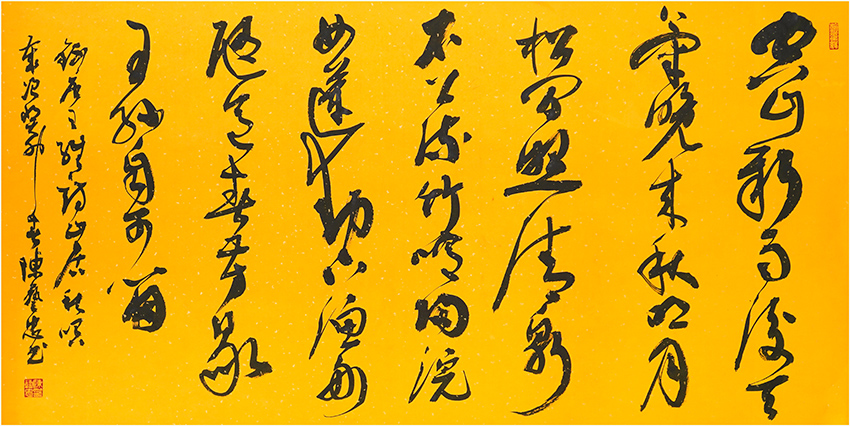 空山新雨後天
氣晚来秋明月
松間照清泉
石上流竹喧歸浣
女蓮動下漁舟
随意春芳歇
王孫自可留
錄唐王維詩山居秋暝
歲次癸卯春陳藝忠书